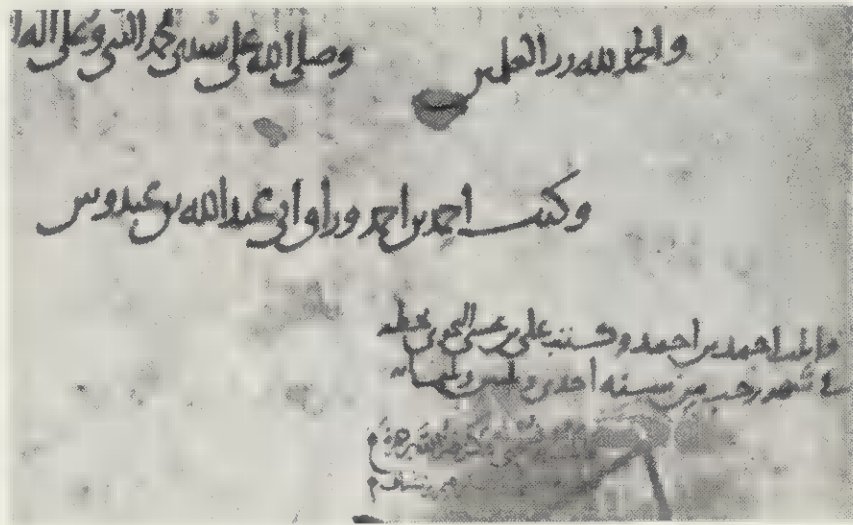 والحمد لله رب العلمين وصلى الله على سيدنا محمد النبي وعلى اله
وكتب احمد بن احمد وراق ابي عبد الله بن عبدوس
احمد بن احمد وكتب علي بن عيسى النحوي بخطه
في شهر رجب من سنة احدى وثلثين وثلثمائة